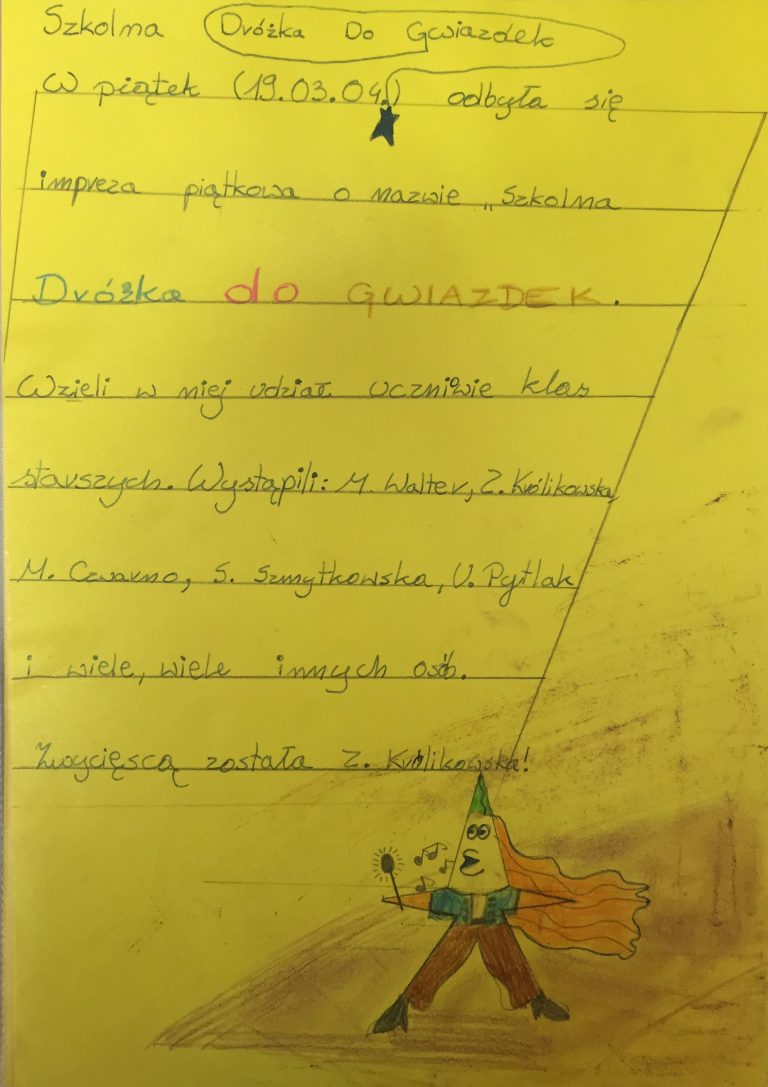 Szkolna Dróżka Do Gwiazdek
W piątek (19.03.04.) odbyła się
impreza piątkowa o nazwie „Szkolna
Dróżka do GWIAZDEK.
Wzieli w niej udział uczniowie klas
starszych. Wystąpili: M. Walter, Z. Królikowska,
M. Czwarno, S. Szmytkowska, U. Pytlak
i wiele, wiele innych osób.
Zwycięscą została Z. Królikowska!